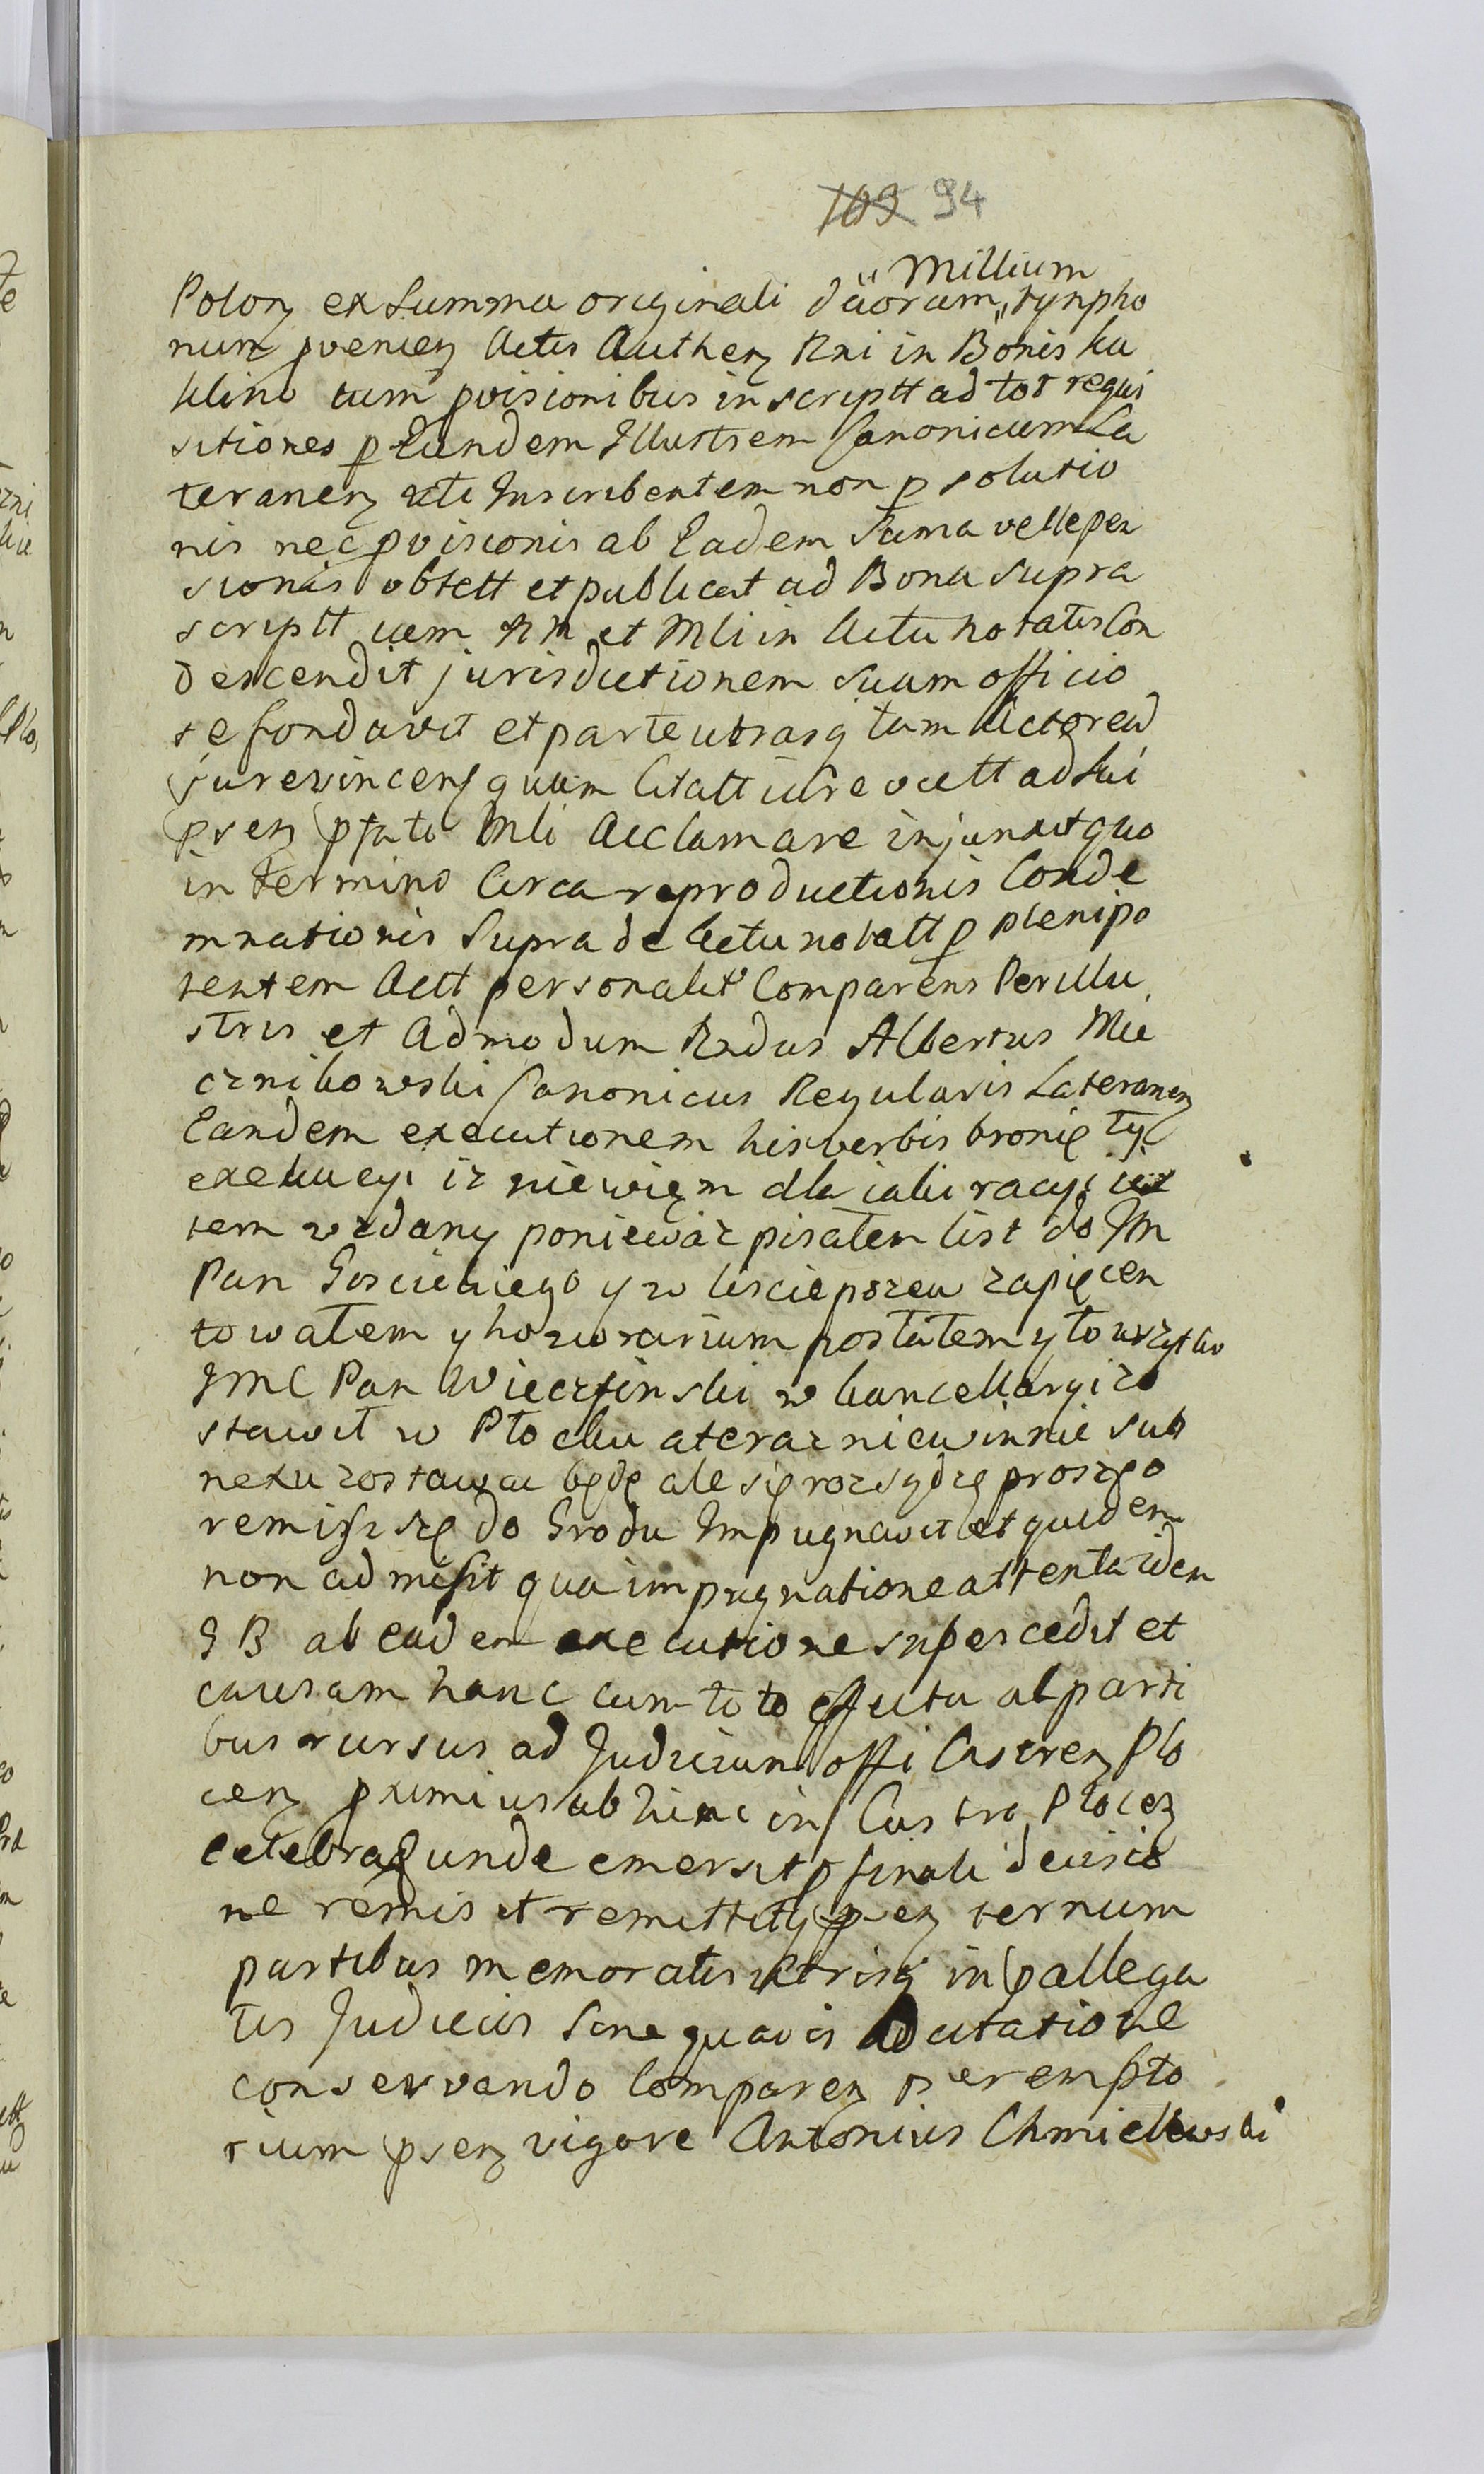 109 94
Millium
Polon ex Summa originali duarum tynpho
num proenien Actis Authen Rni in Bonis Ku
klino tum proisionibus inscriptt ad tot requi
sitiones p Eundem Illustrem Canonicum La
teranen uti Inscribentem non p solutio
nis nec proisionis ab Eadem Suma vel le pen
sionis obtett et publicat ad Bona supra
scriptt et Mli in Actu notatis Con
descendit jurisdictionem suam officio
se fondavit et parte utrasq tam Actorea
jurevincen quam Citatt iure victt ad sui
psen pfato Mli Acclamare injunxit quo
in termino Circa reproductionis Conde
mnationis Supra de Actu notatt p plenipo
tentem Actt personalit Comparens Perillu
stris et Admodum Rndus Albertus Mie
cznikowski Canonicus Regularis Lateranen
Eandem executionem his verbis bronię ty
exekucyi iz niewięm dla iaki racyi ies
tem wzdany poniewaz pisałem list do Jm
Pan Goscickiego y w liscie pozew zapięcen
towałem y honorarium posłałem y to wszytko
JMC Pan Wieczfinski w kancellaryi zo
stawił w Płocku a teraz niewinnie sub
nexu zostawac będę ale się rozsądzę proszę o
remissę do Grodu Impugnavit et quidem
non admisit qua impugnatione attenta idem
G B ab eadem executione supercedit et
causam hanc cum toto effectu ab parti
bus rursus ad Judicium offi Castren Plo
cen pximius abhinc in Castro Plocen
celebra unde emersit p finali decisio
ne remisit remittitq psen ternum
partibus memoratis utrisq in pallega
tis Judiciis sine quavis Adcitatione
conservando Comparen perempto
rium psen vigore Antonius Chmielewski